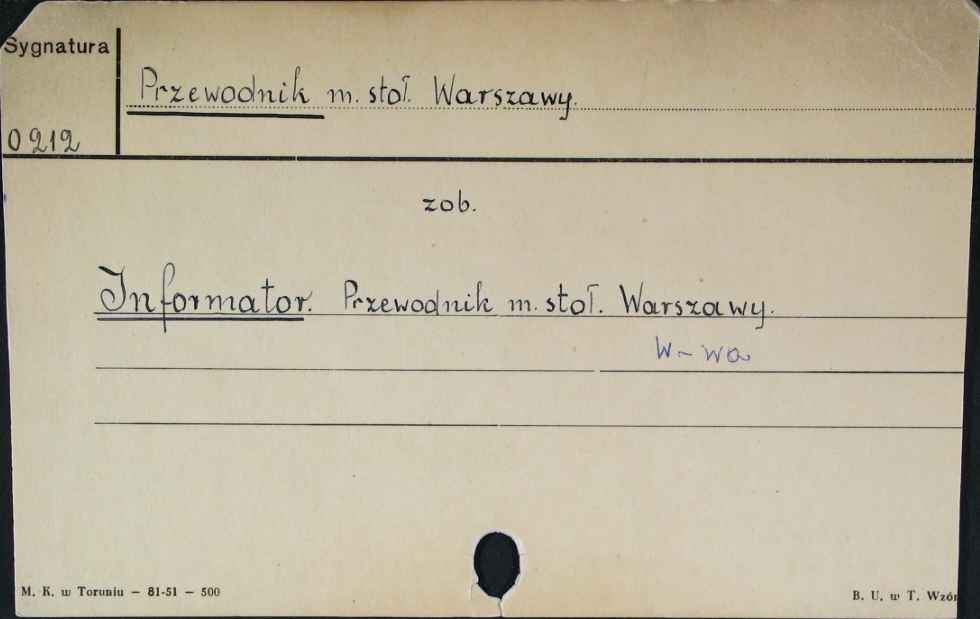 Sygnatura
Przewodnik m. stoł. Warszawy.
0212
zob.
Informator. Przewodnik m. stoł. Warszawy.
W-wa
M. K. w Toruniu — 81-51 — 500
B. U. w T. Wzór